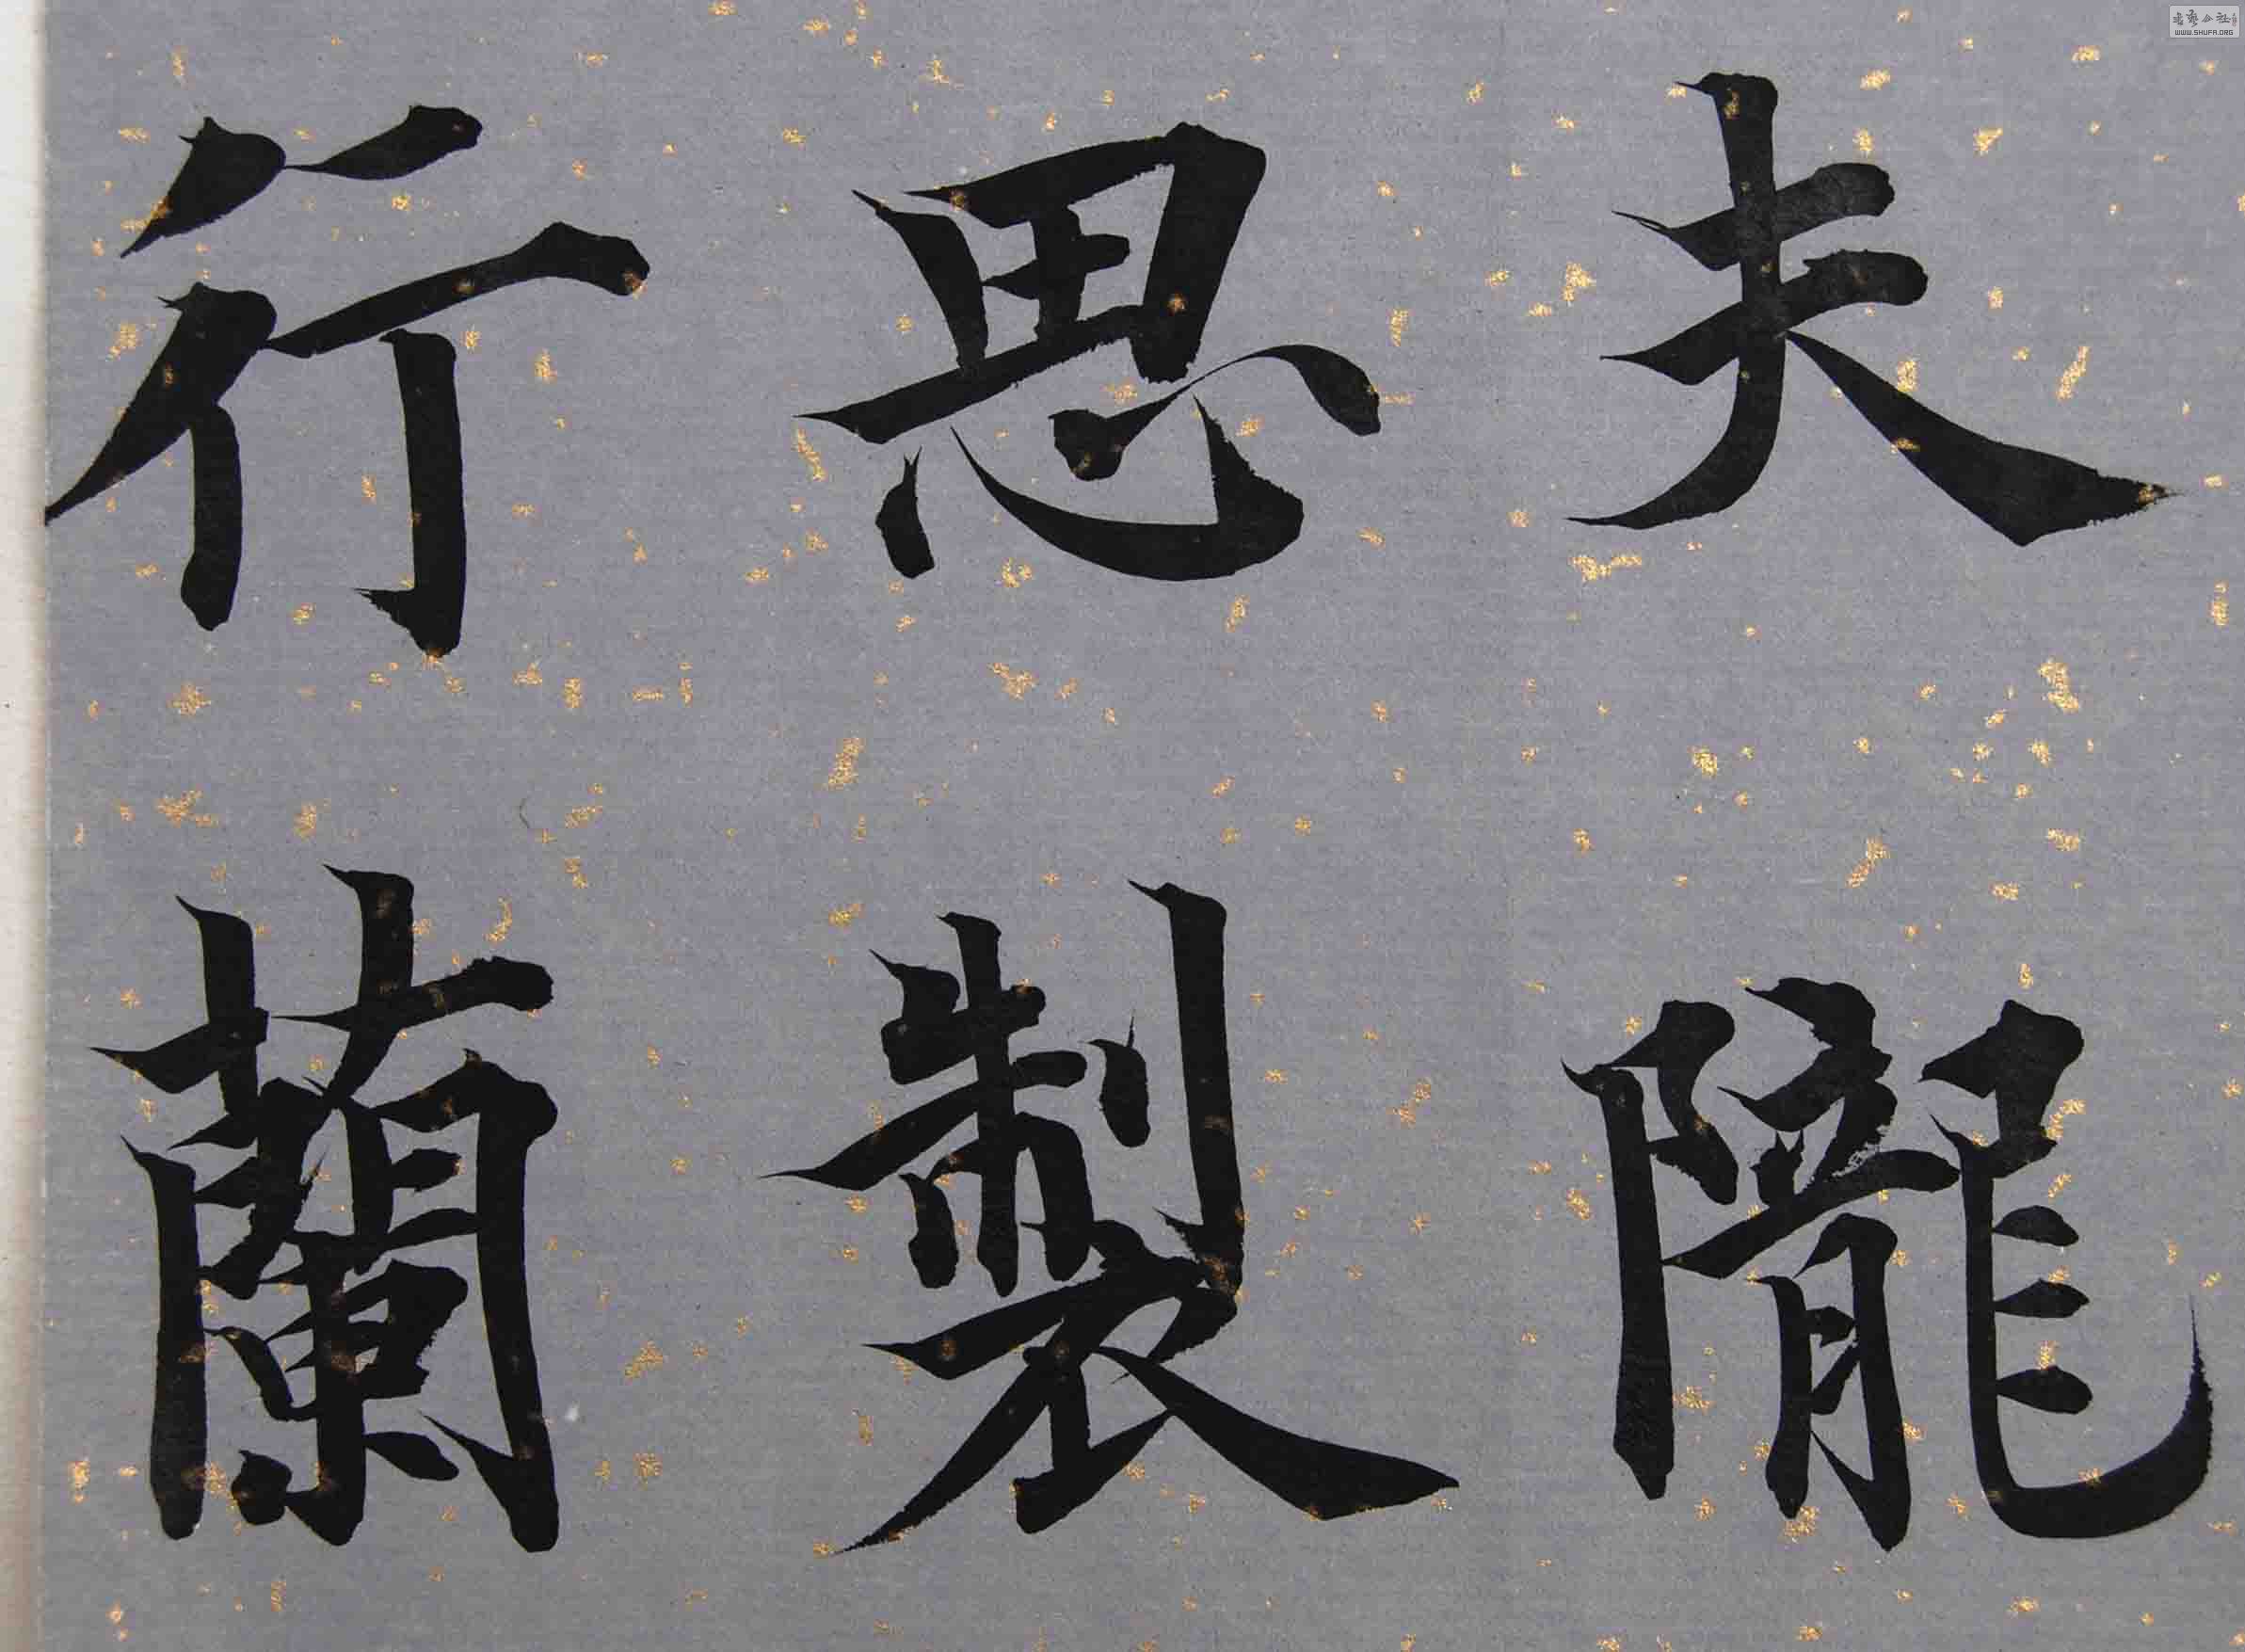 夫隴
思製
行蘭
書藝公社
WWW.SHUFA.ORG